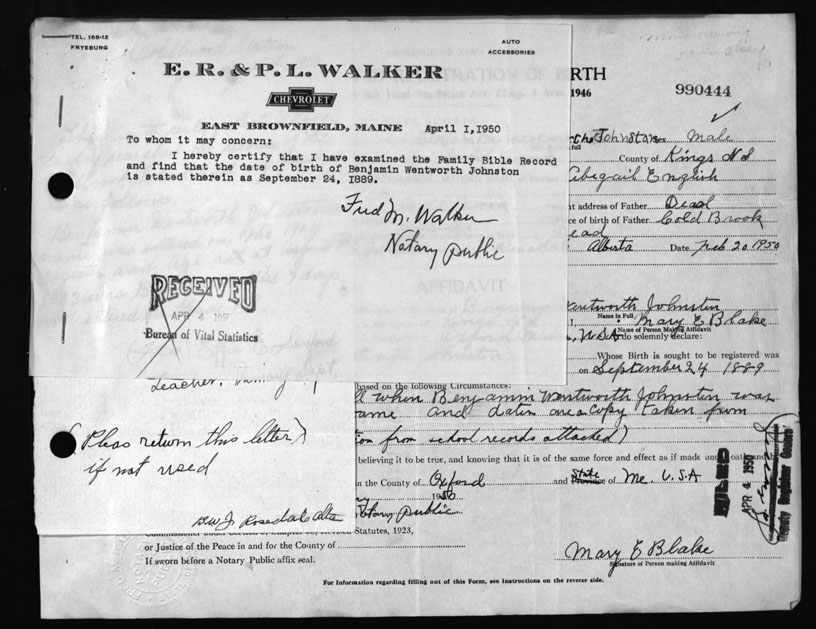 TEL. 168-12
FRYEBURG
AUTO
ACCESSORIES
E. R. & P. L. WALKER
CHEVROLET
EAST BROWNFIELD, MAINE April 1, 1950
To whom it may concern:
I hereby certify that I have examined the Family Bible Record
and find that the date of birth of Benjamin Wentworth Johnston
is stated therein as September 24, 1889.
Fred M. Walker
Notary Public
RECEIVED
APR 4 195
Bureau of Vital Statistics
Teacher,
(Pleas return this letter)
if not used
Rosedale Alta
ISTRATION OF BIRTH
1946
990444
Johnston Sex Male
County of Kings N S
Abigail English
nt address of Father Dead
ce of birth of Father Cold Brook
ead
Alberta Date Feb 20 1950
AFFIDAVIT
entworth Johnston
Name in Full
Mary E Blake
Name of Person Making Affidavit
U.S.A do solemnly declare:
Whose Birth is sought to be registered was
on September 24 1889
based on the following Circumstances:
ll when Benjamin Wentworth Johnston was
ame and dates are a copy taken from
ion from school records attached)
believing it to be true, and knowing that it is of the same force and effect as if made under oath and
in the County of Oxford and State Province of Me. U.S.A
1950
Notary Public
Statutes, 1923,
or Justice of the Peace in and for the County of
If sworn before a Notary Public affix seal.
Mary E Blake
Signature of Person making Affidavit
For Information regarding filling out of this Form, see Instructions on the reverse side.
APR 4 1950
Deputy Registrar General